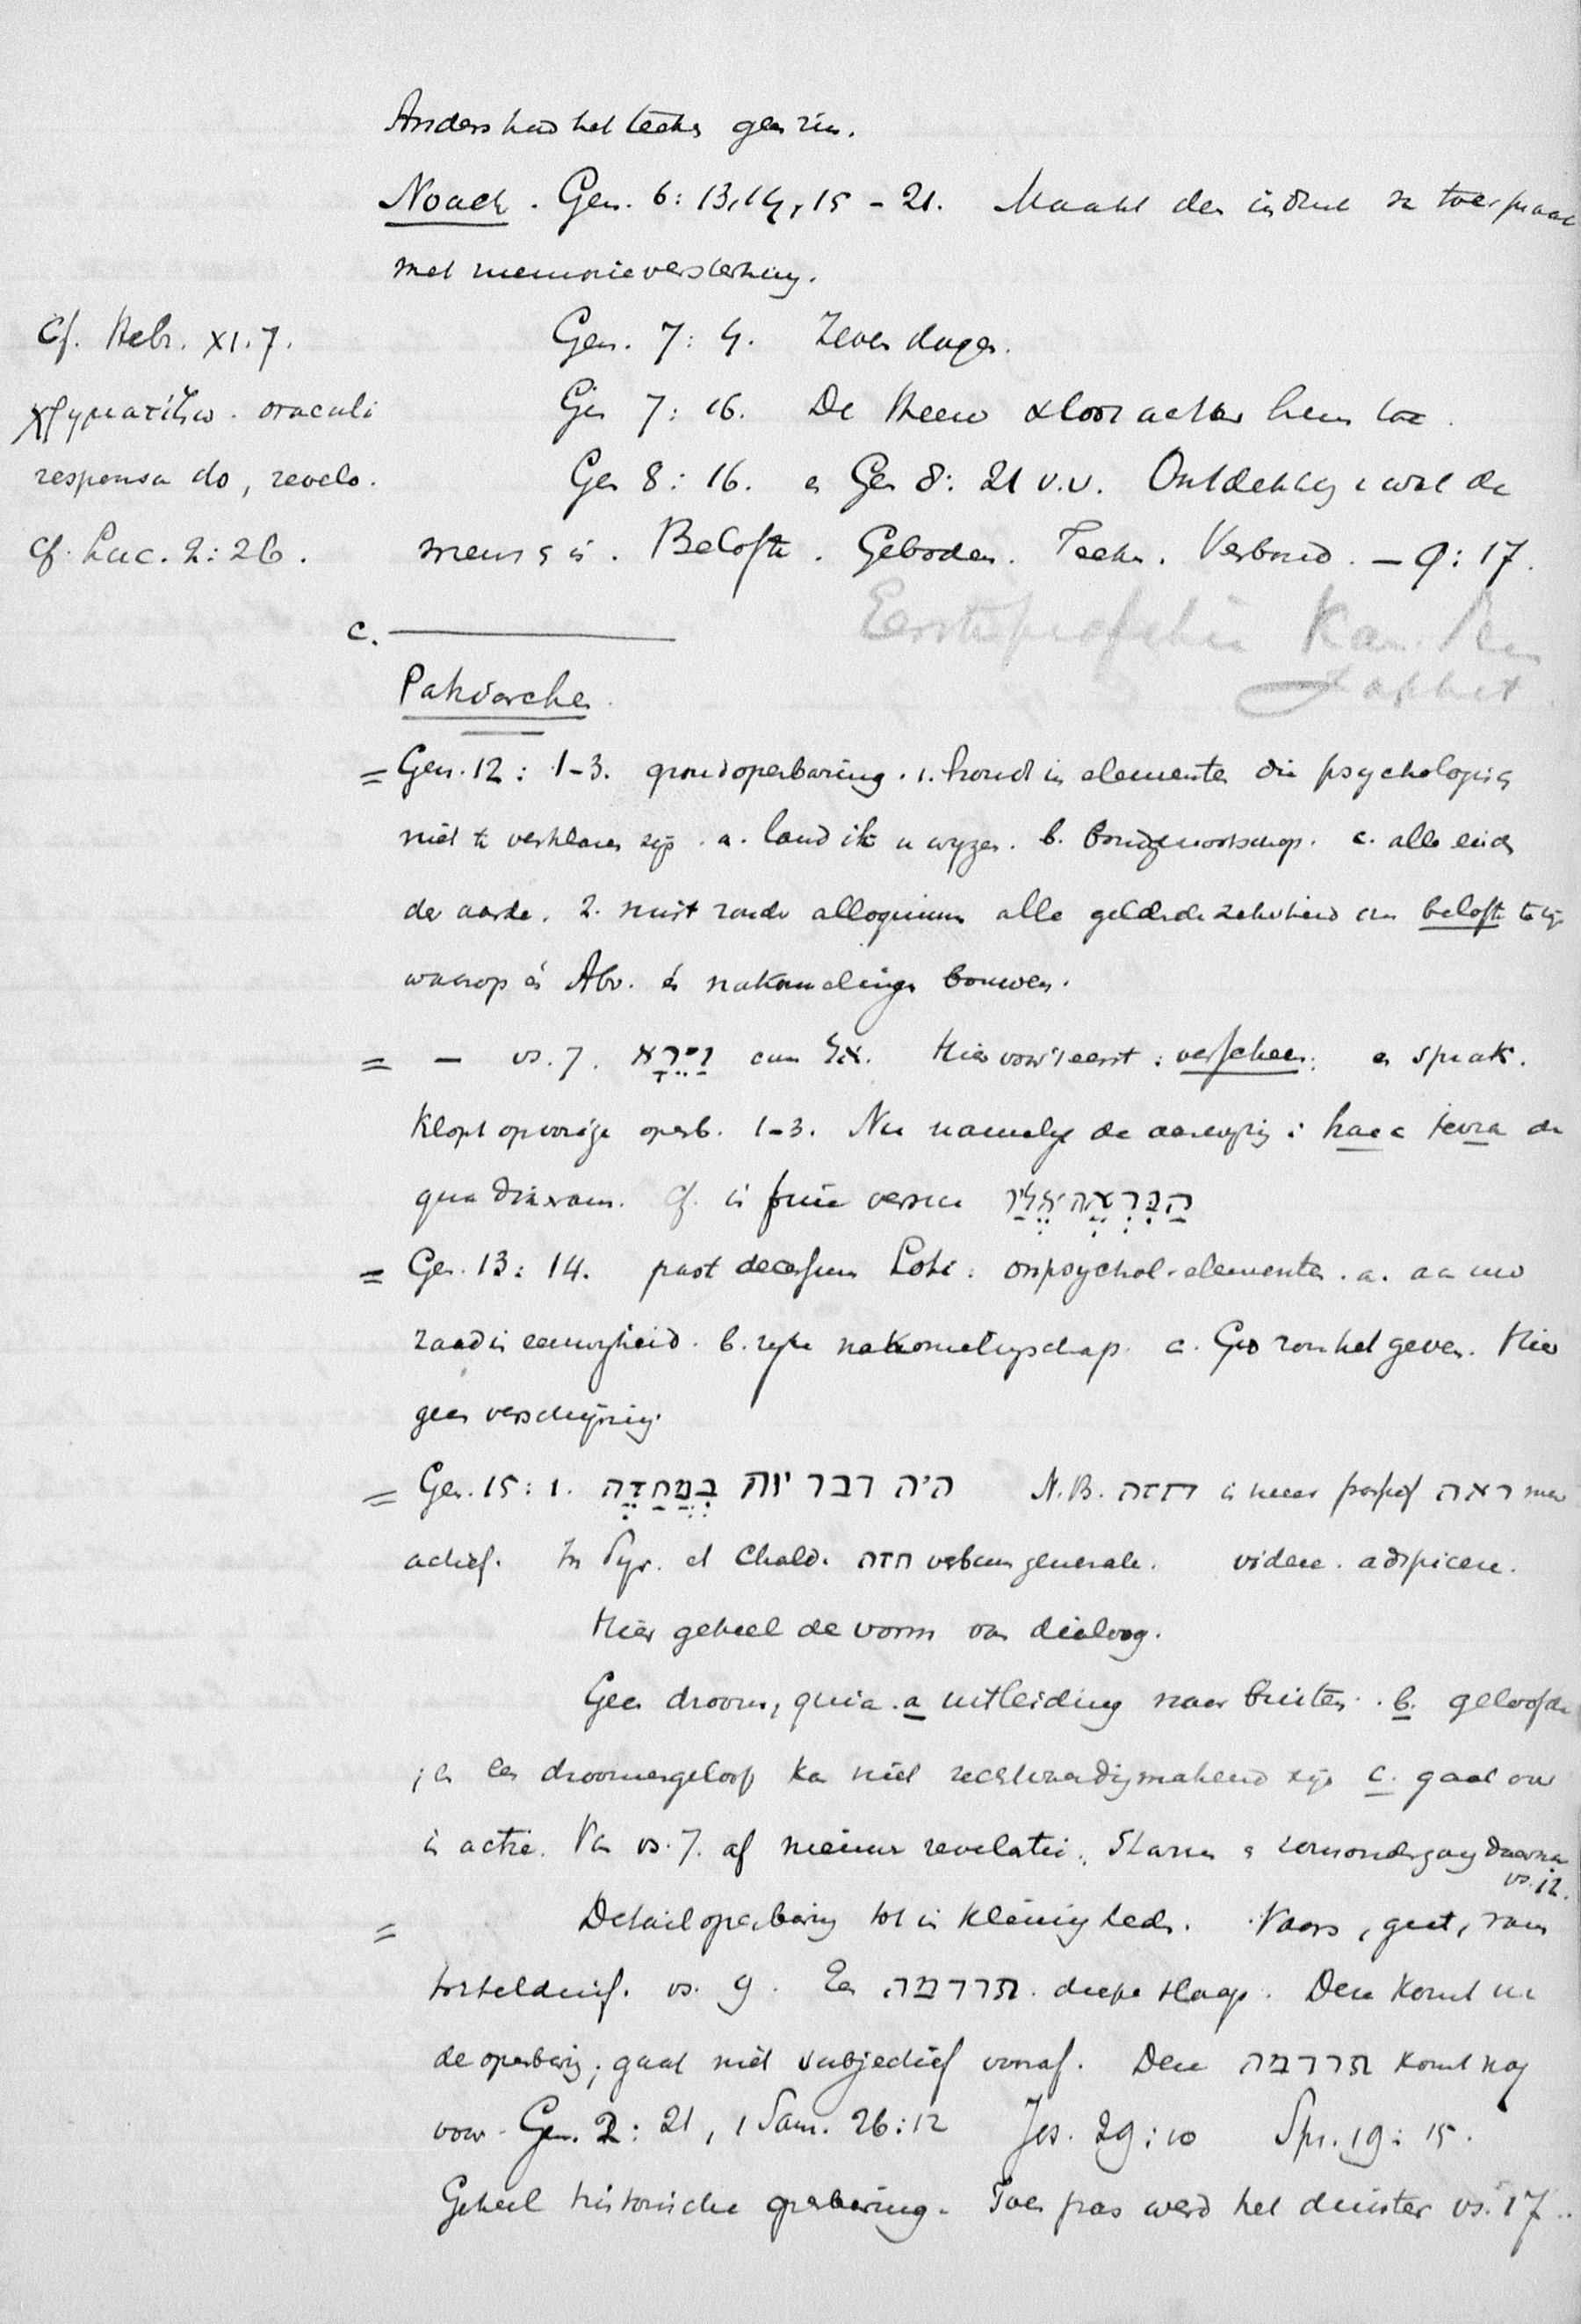 Anders had het teeken geen zin.
Noach. Gen. 6: 13, 14, 15 - 21. Maakt den indruk v. toespraak
met memorieversterking.
Cf. Hebr. XI. 7.
Gen. 7: 4. Zeven dagen.
χρηματίζω. oraculi
Gen 7: 16. De Heere sloot achter hem toe.
responsa do, revelo.
Gen 8: 16. en Gen 8: 21 v.v. Ontdekking wat de
cf. Luc. 2: 26.
mensch is. Belofte. Geboden. Teeken. Verbond. — 9: 17.
Eerste profetie Kan. Sem
Jafhet
c.
Patriarchen.
= Gen. 12: 1-3. grondopenbaring. 1. houdt in elementen die psychologisch
niet te verklaren zijn. a. land ik u wijzen. b. bondgenootschap. c. alle einden
der aarde. 2. mist zonder alloquium alle geldende zekerheid om belofte te zijn
waarop én Abr. én nakomelingen bouwen.
= — vs. 7. וַיֵּרָא aan אל. Hier voor 't eerst: verscheen: en sprak.
Klopt op vorige openb. 1-3. Nu namelijk de aanwijzing: haec terra de
qua dixeram. Cf. in fine versus הַנִּרְאֶה אֵלָיו
= Gen. 13: 14. post decessum Loti: onpsychol. elementen. a. aan uw
zaad in eeuwigheid. b. rijke nakomelingschap. c. God zou het geven. Hier
geen verschijning.
= Gen. 15: 1. היה דבר יהוה בַּמַּחֲזֶה N.B. חזה is meer passief ראה meer
actief. In Syr. et Chald. חזה verbum generale. videre. adspicere.
Hier geheel de vorm van dialoog.
Geen droom, quia a uitleiding naar buiten. b. geloofde
; en een droomengeloof kan niet rechtvaardigmakend zijn c. gaat over
in actie. Van vs. 7. af nieuwe revelatie. Starren en zonsondergang daarna
vs. 12.
= Detailopenbaring tot in kleinigheden. Vaars, geit, ram
tortelduif. vs. 9. Een תרדמה. diepe slaap. Deze komt na
de openbaring; gaat niet subjectief vooraf. Deze תרדמה komt nog
voor. Gen. 2: 21, 1 Sam. 26: 12 Jes. 29: 10 Spr. 19: 15.
Geheel historische openbaring. Toen pas werd het duister vs. 17..